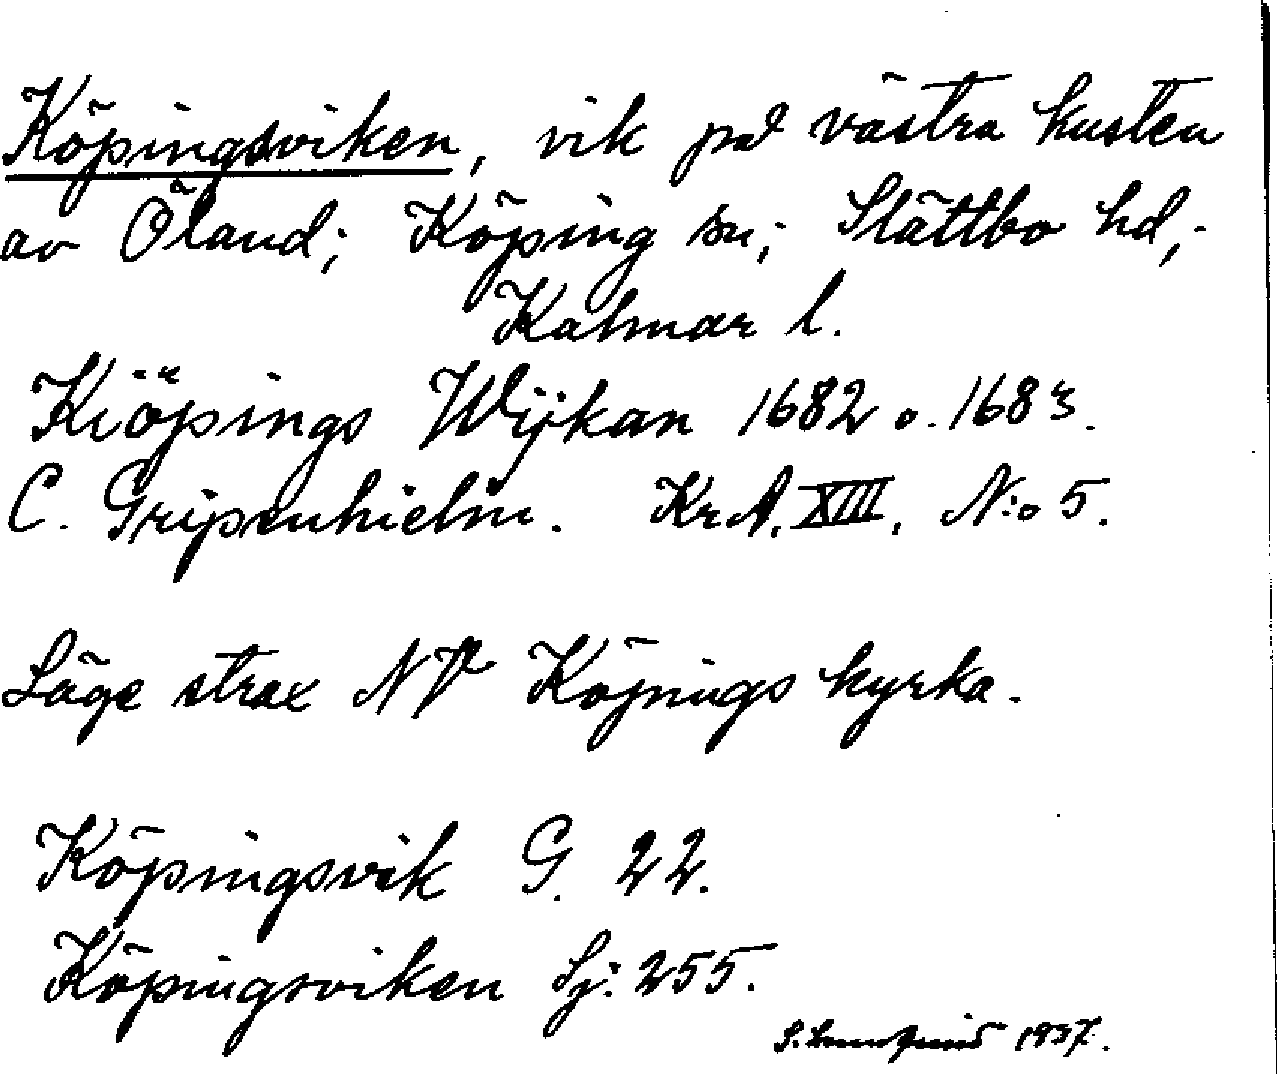 Köpingsviken, vik på västra kusten
av Öland; Köping sn; Slättbo hd,
Kalmar l.
Kiöpings Wijkan 1682 o. 1683.
C. Gripenhielm. KrA. XIII. N:o 5.
Läge strax NV Köpings kyrka.
Köpingsvik G. 22.
Köpingsviken Sj: 255.
S. 1937.